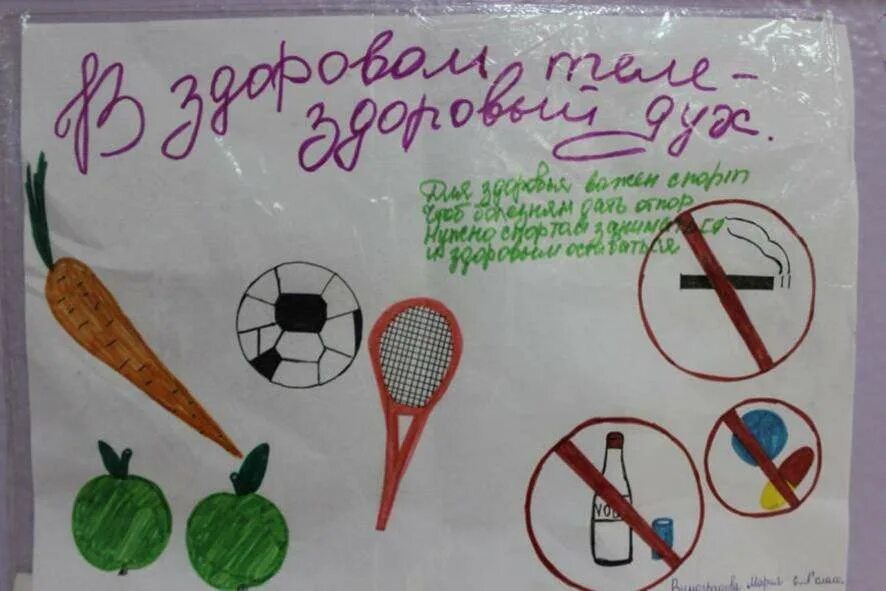 В здоровом теле -
здоровый дух.
Для здоровья важен спорт
Чтоб болезням дать отпор
Нужно спортом заниматься
и здоровым оставаться
VOD
Мария